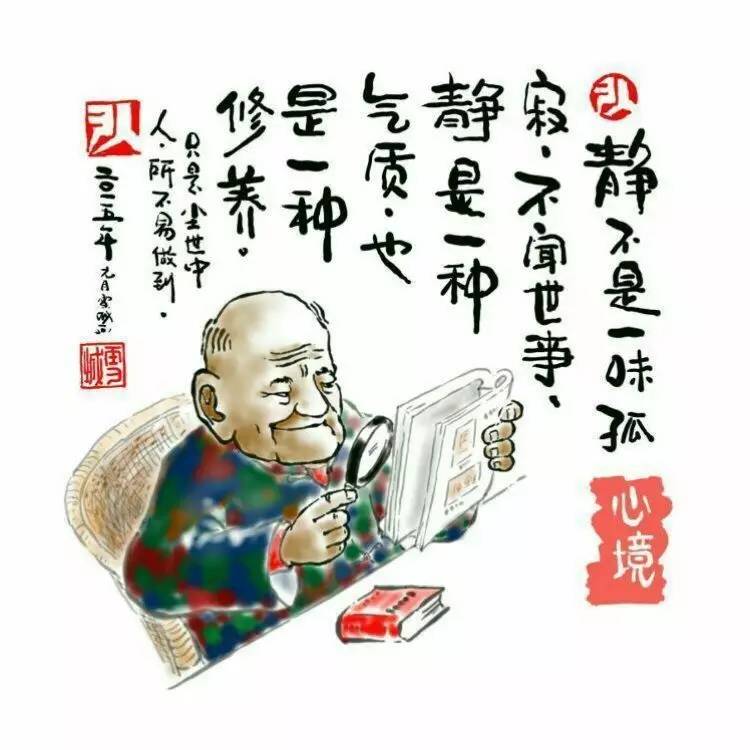 静不是一味孤
寂、不闻世事、
静是一种
气质·也
是一种
修养。
只是尘世中
人·所不易做到。
二〇一五年
心境